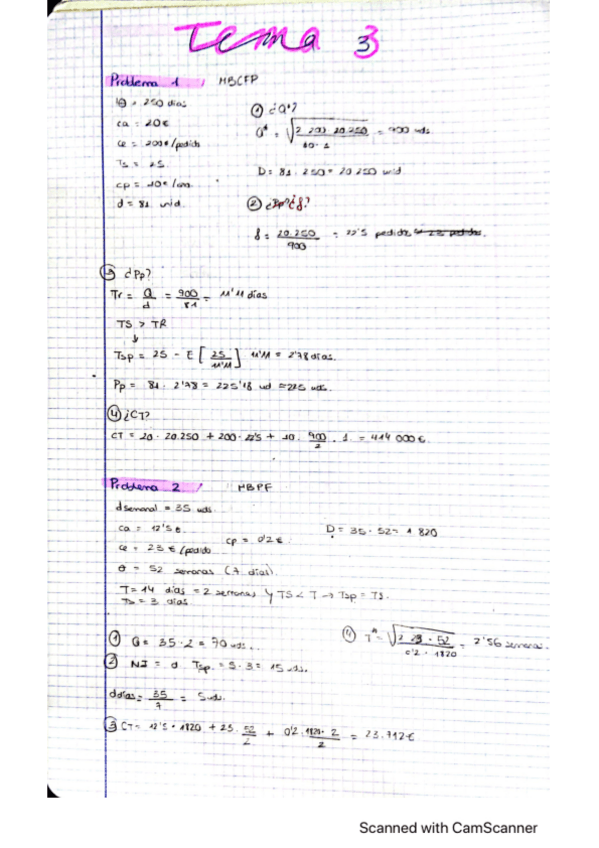 Tema 3
Problema 1 / MBCFP
θ = 250 días
ca = 20€
ce = 200€/pedido
Ts = 25
cp = 10€/
d = 81 unid.
① ¿Q*?
Q* = √ 2 200 20.250 / 10.1 = 900 uds
D = 81 . 250 = 20 250 unid
② ¿ f?
f = 20.250 / 900 = 22'5 pedidos
③ ¿Pp?
Tr = Q/d = 900/81 = 11'11 días
TS > TR
↓
Tsp = 25 - E [25/11'11] 11'11 = 2'78 días.
Pp = 81 . 2'78 = 225'18 ud ≈ 225 uds.
④ ¿CT?
CT = 20 . 20.250 + 200 . 22'5 + 10 . 900/2 . 1 = 414 000€.
Problema 2 / MBPF
d semanal = 35 uds
ca = 12'5€
ce = 25 €/pedido
cp = 0'2€
D = 35 . 52 = 1 820
θ = 52 semanas (7 días).
T = 14 días = 2 semanas y TS < T → Tsp = TS.
Ts = 3 días
① Q = 35 . 2 = 70 uds.
② NI = d Tsp = 5 . 3 = 15 uds.
④ T* = √ 2 25 . 52 / 0'2 . 1820 = 2'56 semanas.
d días = 35/7 = 5 uds.
③ CT = 12'5 . 1820 + 25 . 52/2 + 0'2 . 1820 . 2 / 2 = 23.712€
Scanned with CamScanner